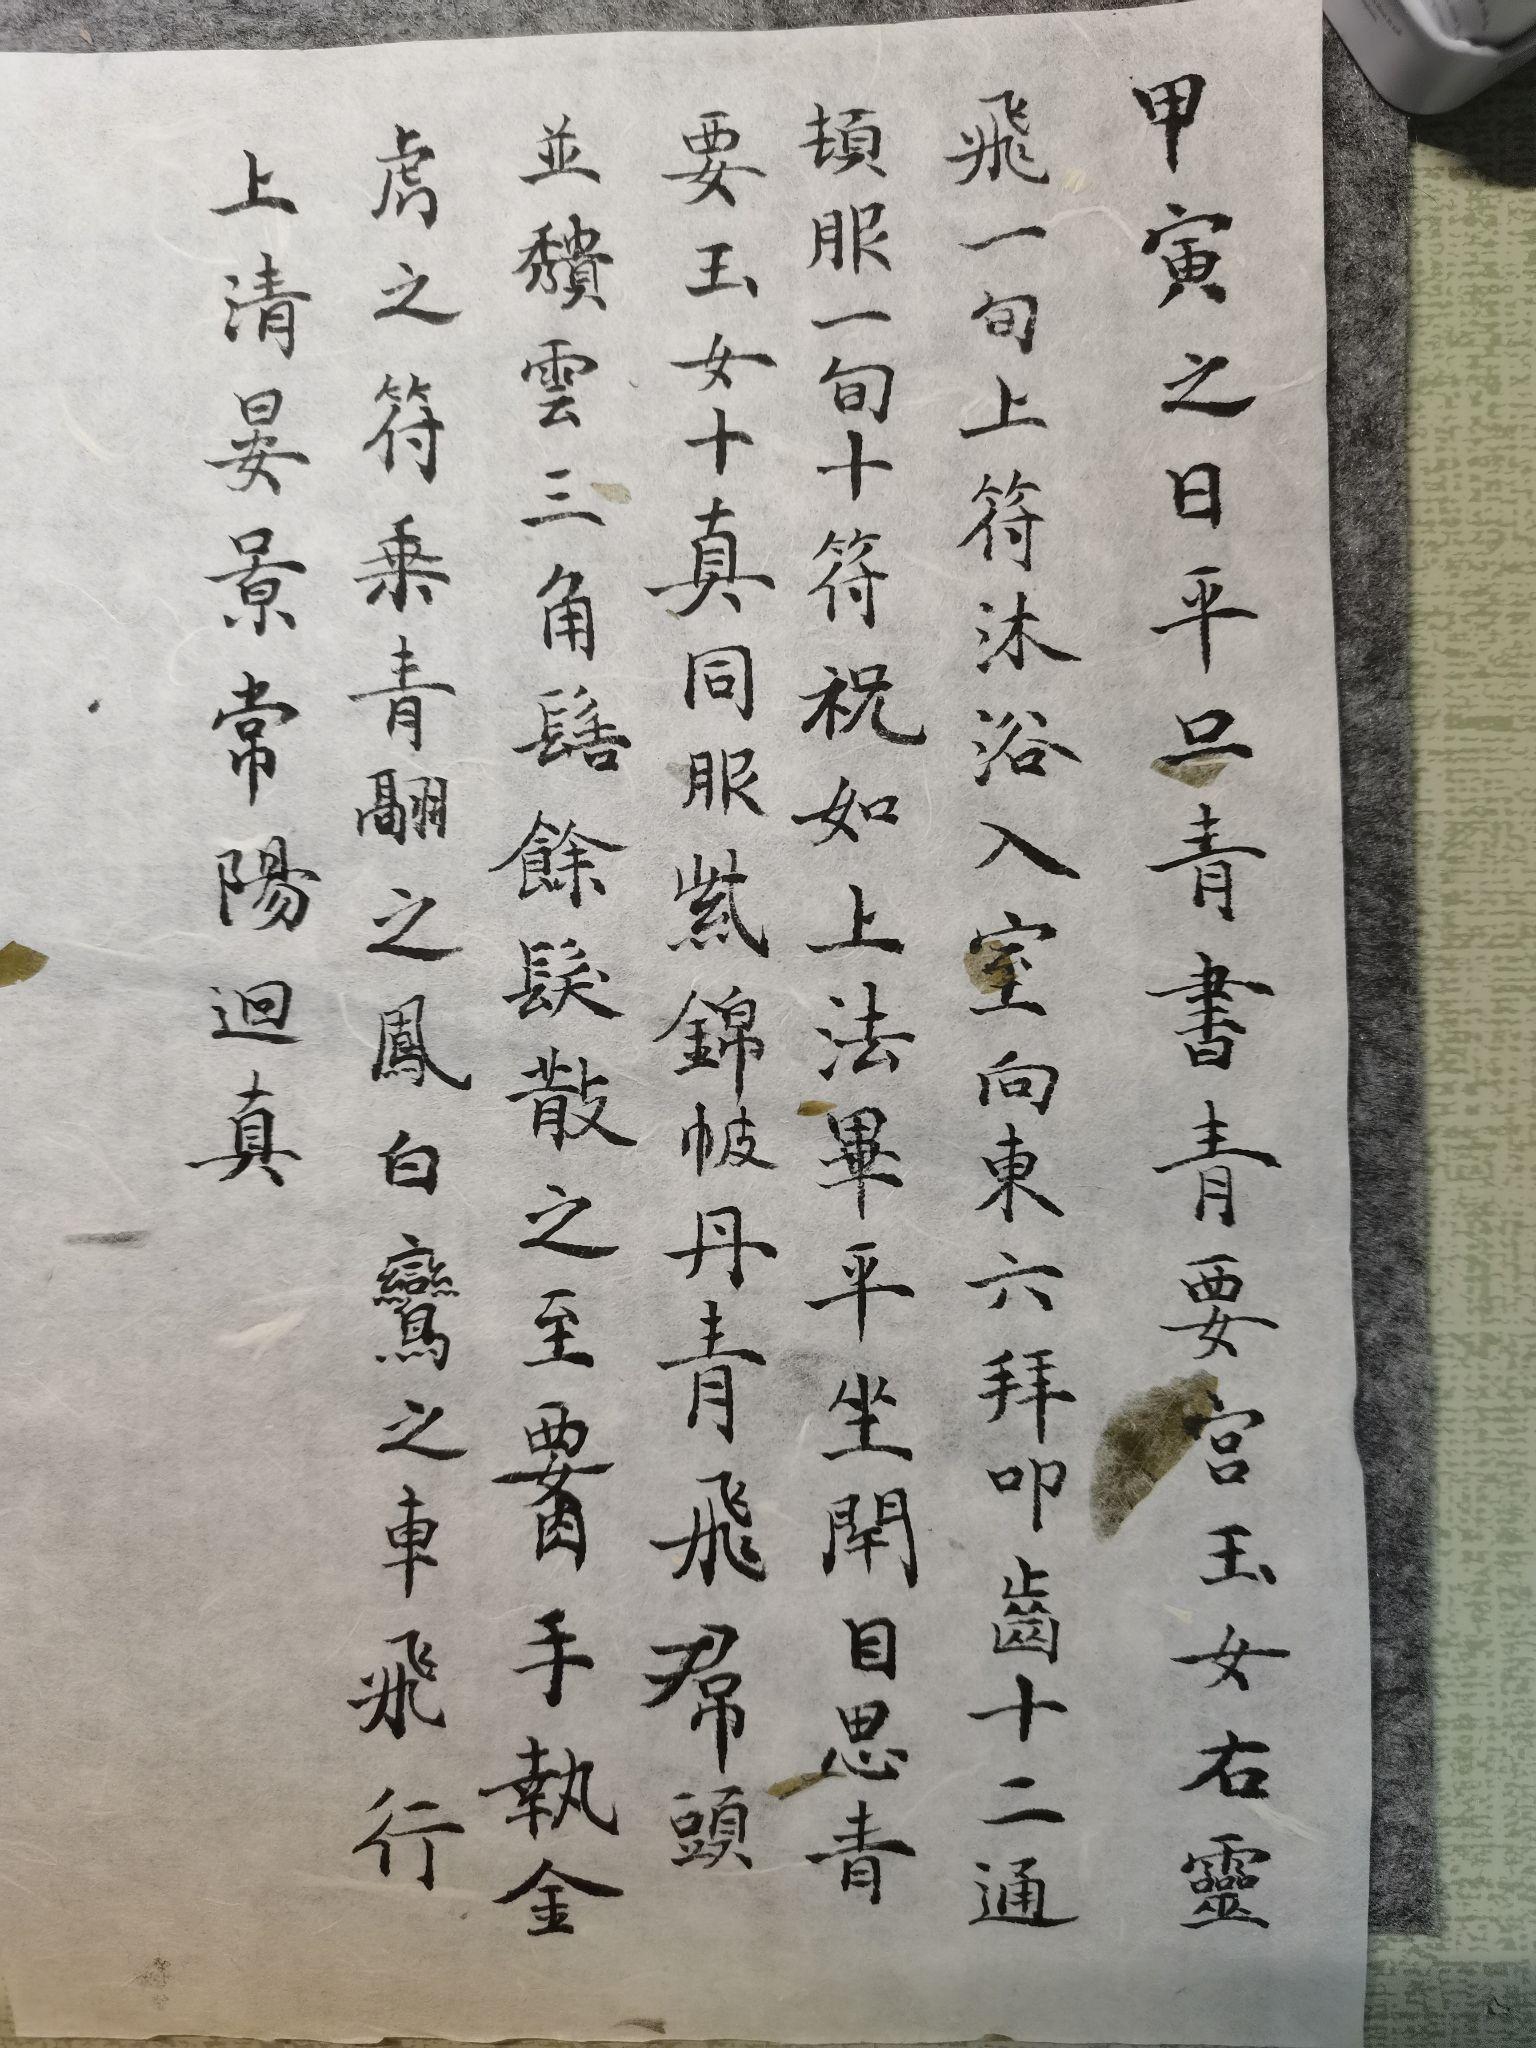 甲寅之日平旦青書青要宮玉女右靈
飛一旬上符沐浴入室向東六拜叩齒十二通
頓服一旬十符祝如上法畢平坐閇目思青
要玉女十真同服紫錦帔丹青飛帬頭
並穨雲三角髻餘髮散之至要手執金
虎之符乗青翮之鳳白鸞之車飛行
上清晏景常陽迴真